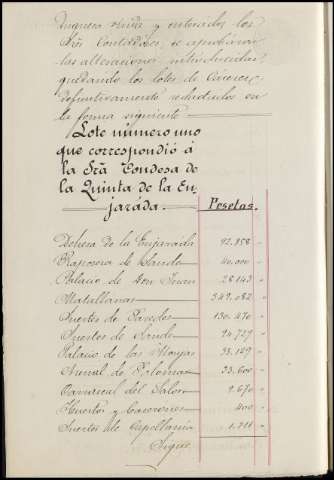 manera riva y enterados los
Srs Contadores, se aprobaron
las alteraciones introducidas,
quedando los lotes de Cáceres,
definitivamente redactados en
la forma siguiente
Lote número uno
que correspondió á
la Srã Condesa de
la Quinta de la En-
jarada.
Pesetas.
Dehesa de la Enjarada 92.858
Raposera de Sande 40.000
Palacio de Don Juan 28.143
Matallanas 349.082
Suertes de Paredes 130.470
Suertes de Sande 24.727
Palacio de las Monjas 33.129
Arenal de Palomas 33.600
Carrascal del Salor 9.670
Huertos y Cacereños 400
Suertes de Capellanía 1.711
Sigue